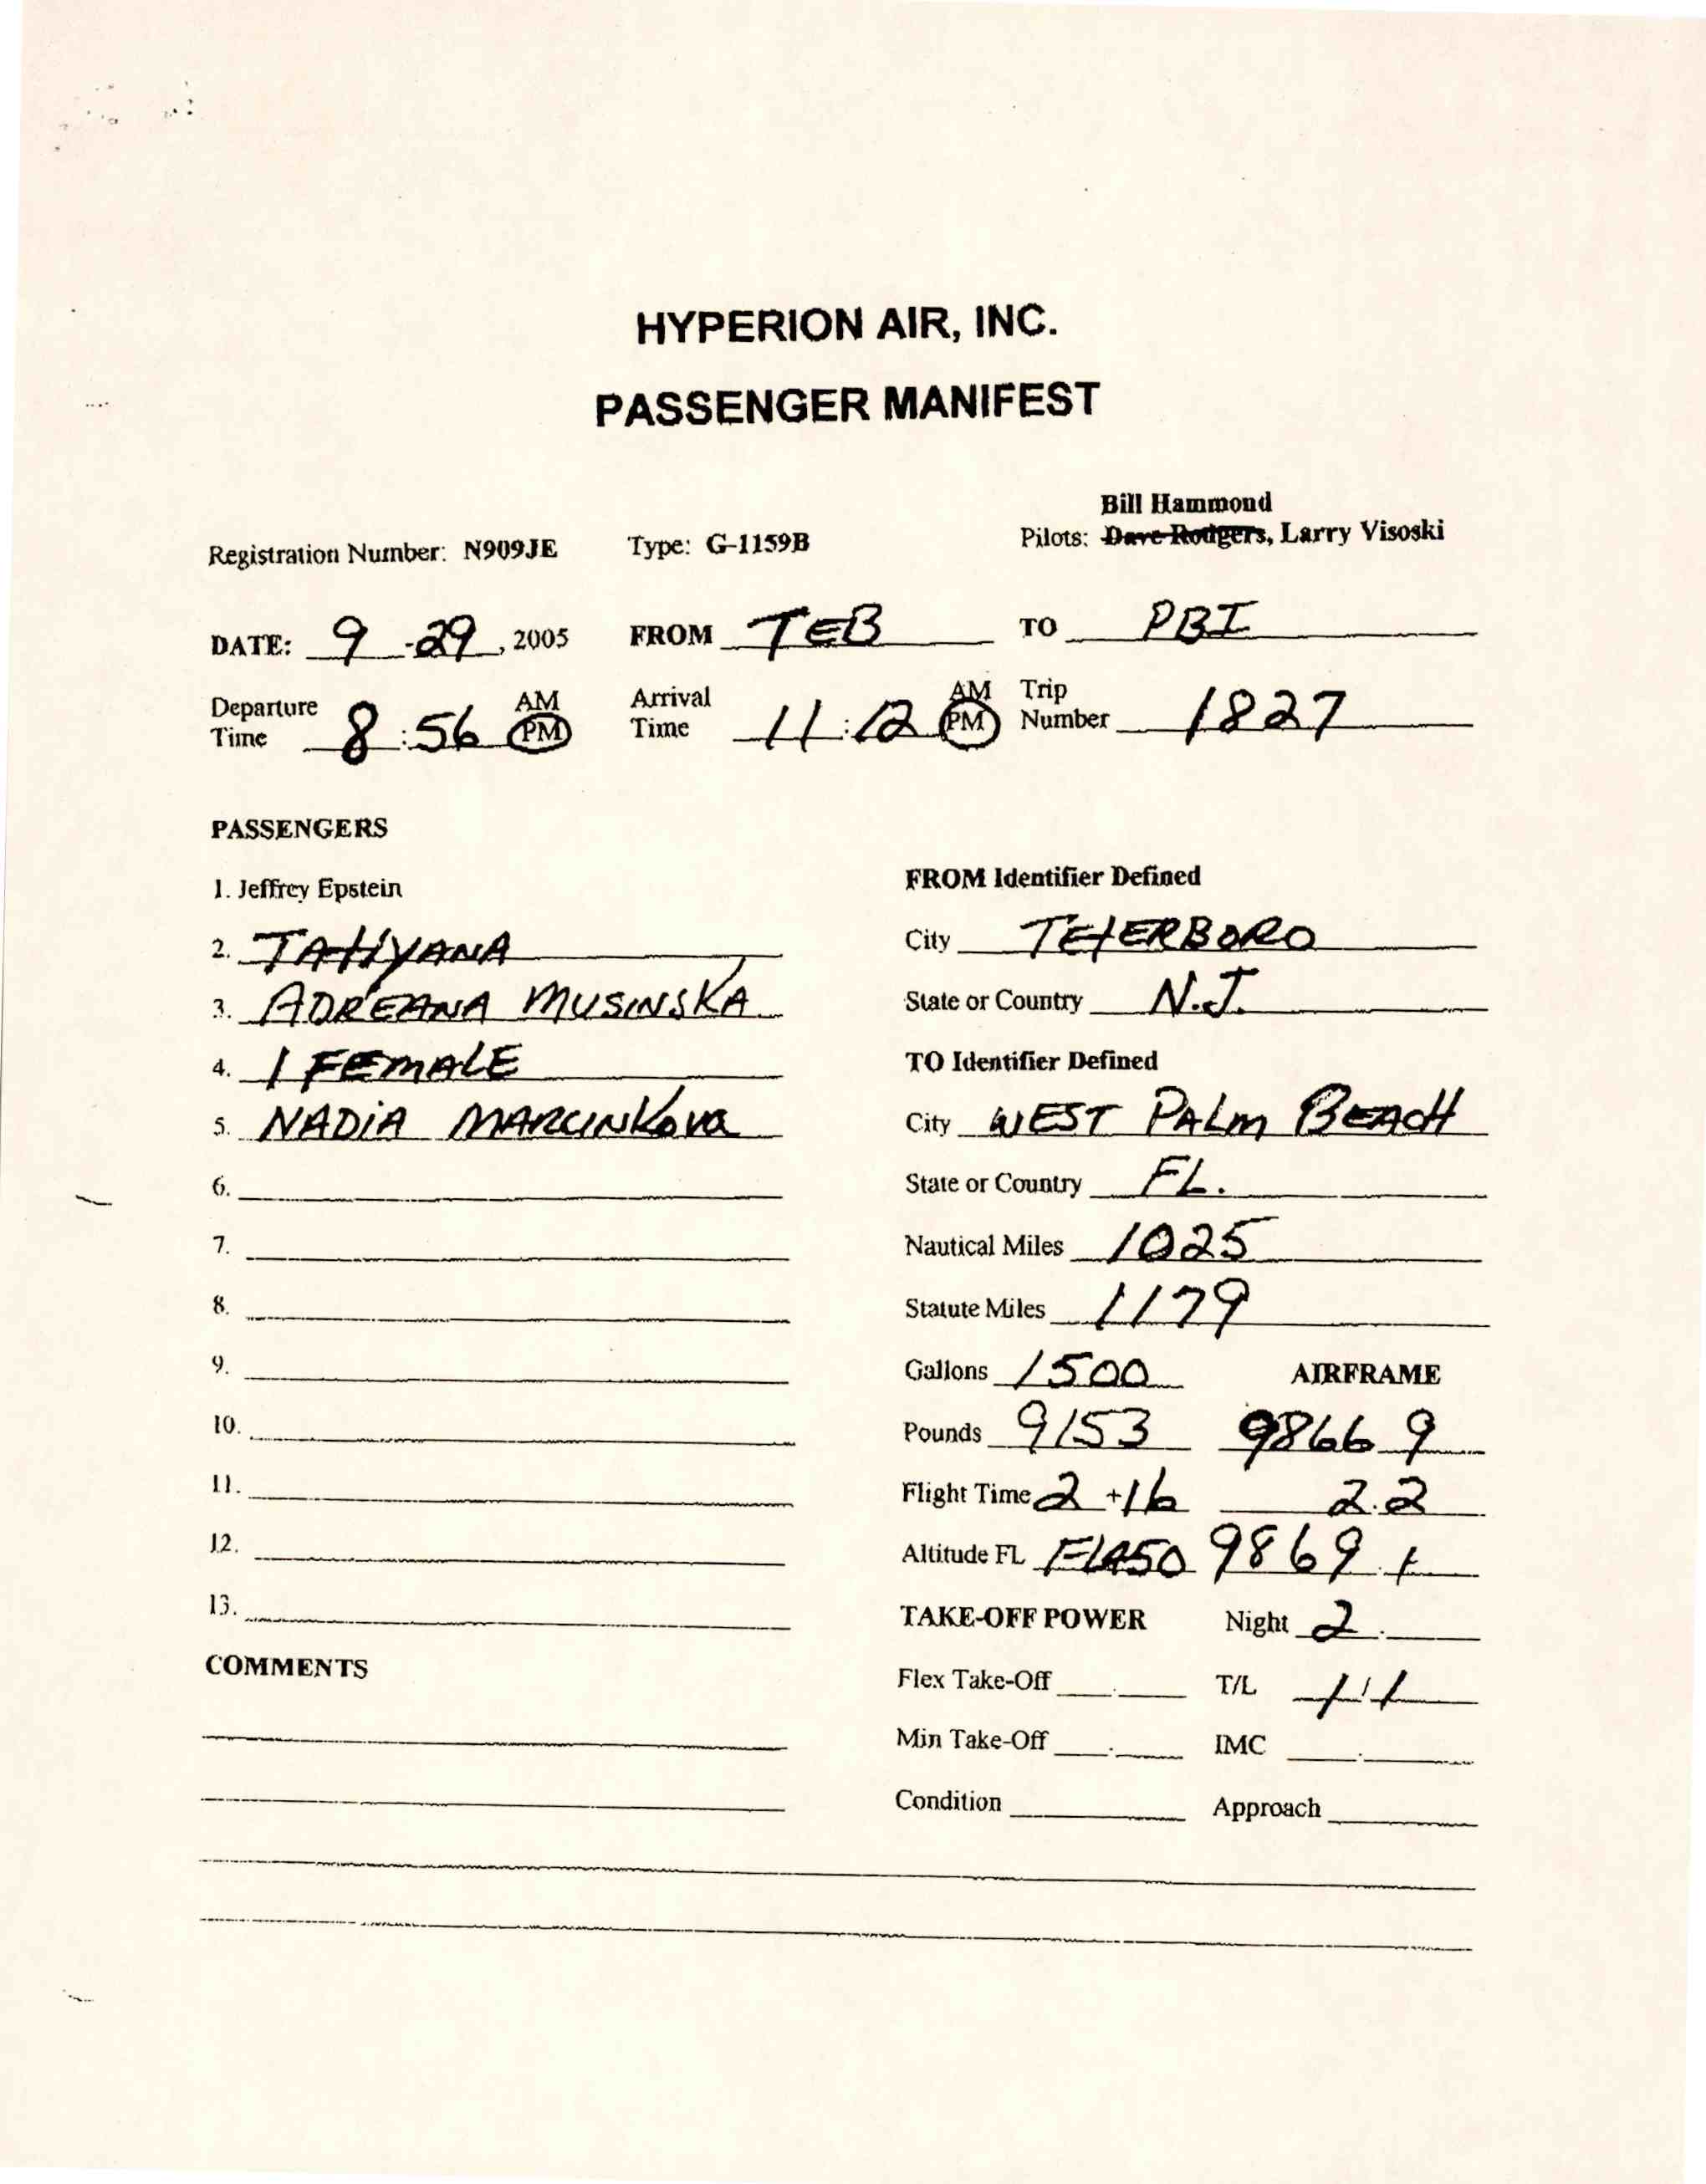 HYPERION AIR, INC.
PASSENGER MANIFEST
Bill Hammond
Registration Number: N909JE Type: G-1159B Pilots: Dave Rodgers, Larry Visoski
DATE: 9-29, 2005 FROM TEB TO PBI
Departure Time 8:56 AM PM Arrival Time 11:12 AM PM Trip Number 1827
PASSENGERS
1. Jeffrey Epstein
2. TATIYANA
3. ADREANA MUSINSKA
4. 1 FEMALE
5. NADIA MARCINKOVA
6.
7.
8.
9.
10.
11.
12.
13.
COMMENTS
FROM Identifier Defined
City TETERBORO
State or Country N.J.
TO Identifier Defined
City WEST PALM BEACH
State or Country FL.
Nautical Miles 1025
Statute Miles 1179
Gallons 1500 AIRFRAME
Pounds 9153 9866.9
Flight Time 2+16 2.2
Altitude FL FL450 9869.1
TAKE-OFF POWER Night 2.
Flex Take-Off . T/L 1/1
Min Take-Off . IMC .
Condition Approach